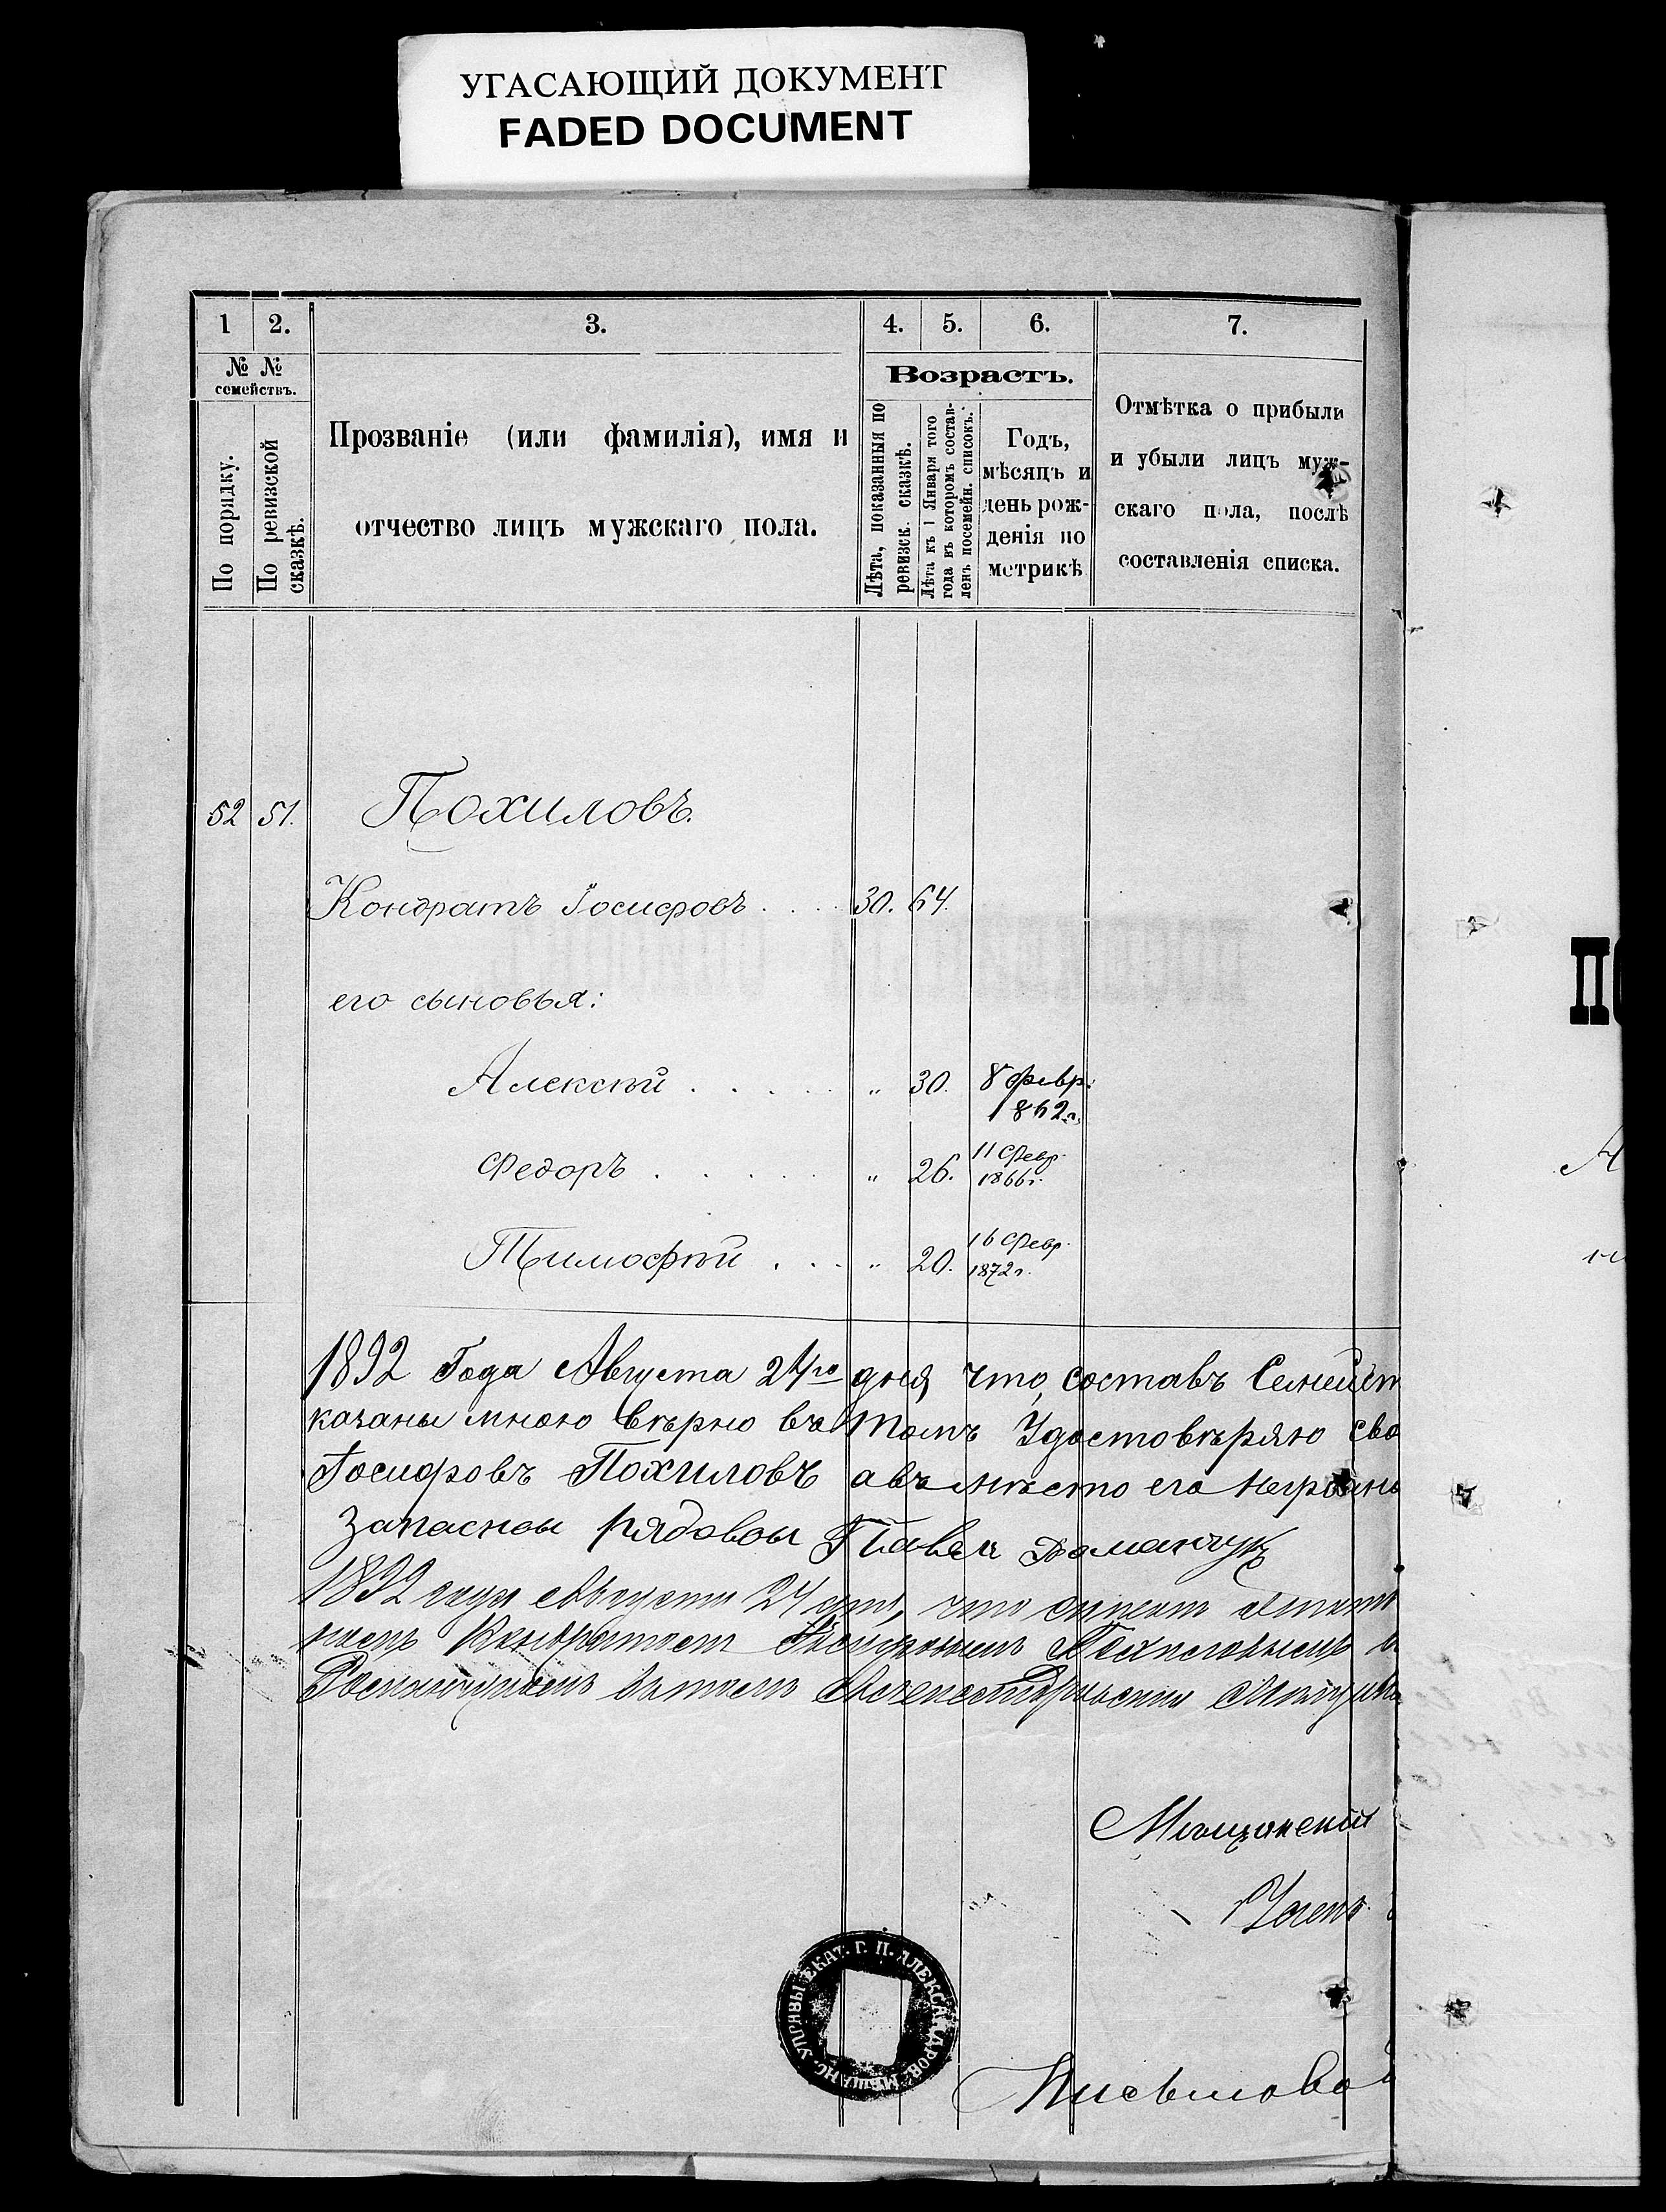 УГАСАЮЩИЙ ДОКУМЕНТ
FADED DOCUMENT
1 2. 3. 4. 5. 6. 7.
№ № семействъ.
По порядку.
По ревизской сказкѣ.
Прозваніе (или фамилія), имя и
отчество лицъ мужскаго пола.
Возрастъ.
Лѣта, показанныя по
ревизск. сказкѣ.
Лѣта къ 1 Января того
года въ которомъ состав-
ленъ посемейн. списокъ.
Годъ,
мѣсяцъ и
день рож-
денія по
метрикѣ
Отмѣтка о прибыли
и убыли лицъ муж-
скаго пола, послѣ
составленія списка.
52 51. Похиловъ.
Кондратъ Іосифовъ . . . . 30. 64.
его сыновья:
Алексѣй . . . . . „ 30. 8 февр.
1862 г.
Федоръ . . . . . „ 26. 11 Февр.
1866 г.
Тимофѣй . . . „ 20. 16 Февр.
1872 г.
1892 Года Августа 24го дня, что составъ Семейст
казаны мною вѣрно въ томъ Удостовѣряю сво
Іосифовъ Похиловъ авъ мѣсто его Неграмо
Запасной Рядовой Павел
1892 года Августа 24 дня, что
Кондратомъ Похиловымъ
Мѣщанскій
Членъ
ПО
МѢЩАНС. УПРАВЫ ЕКАТ. Г. П. АЛЕКСАНДРОВ.
Письмово